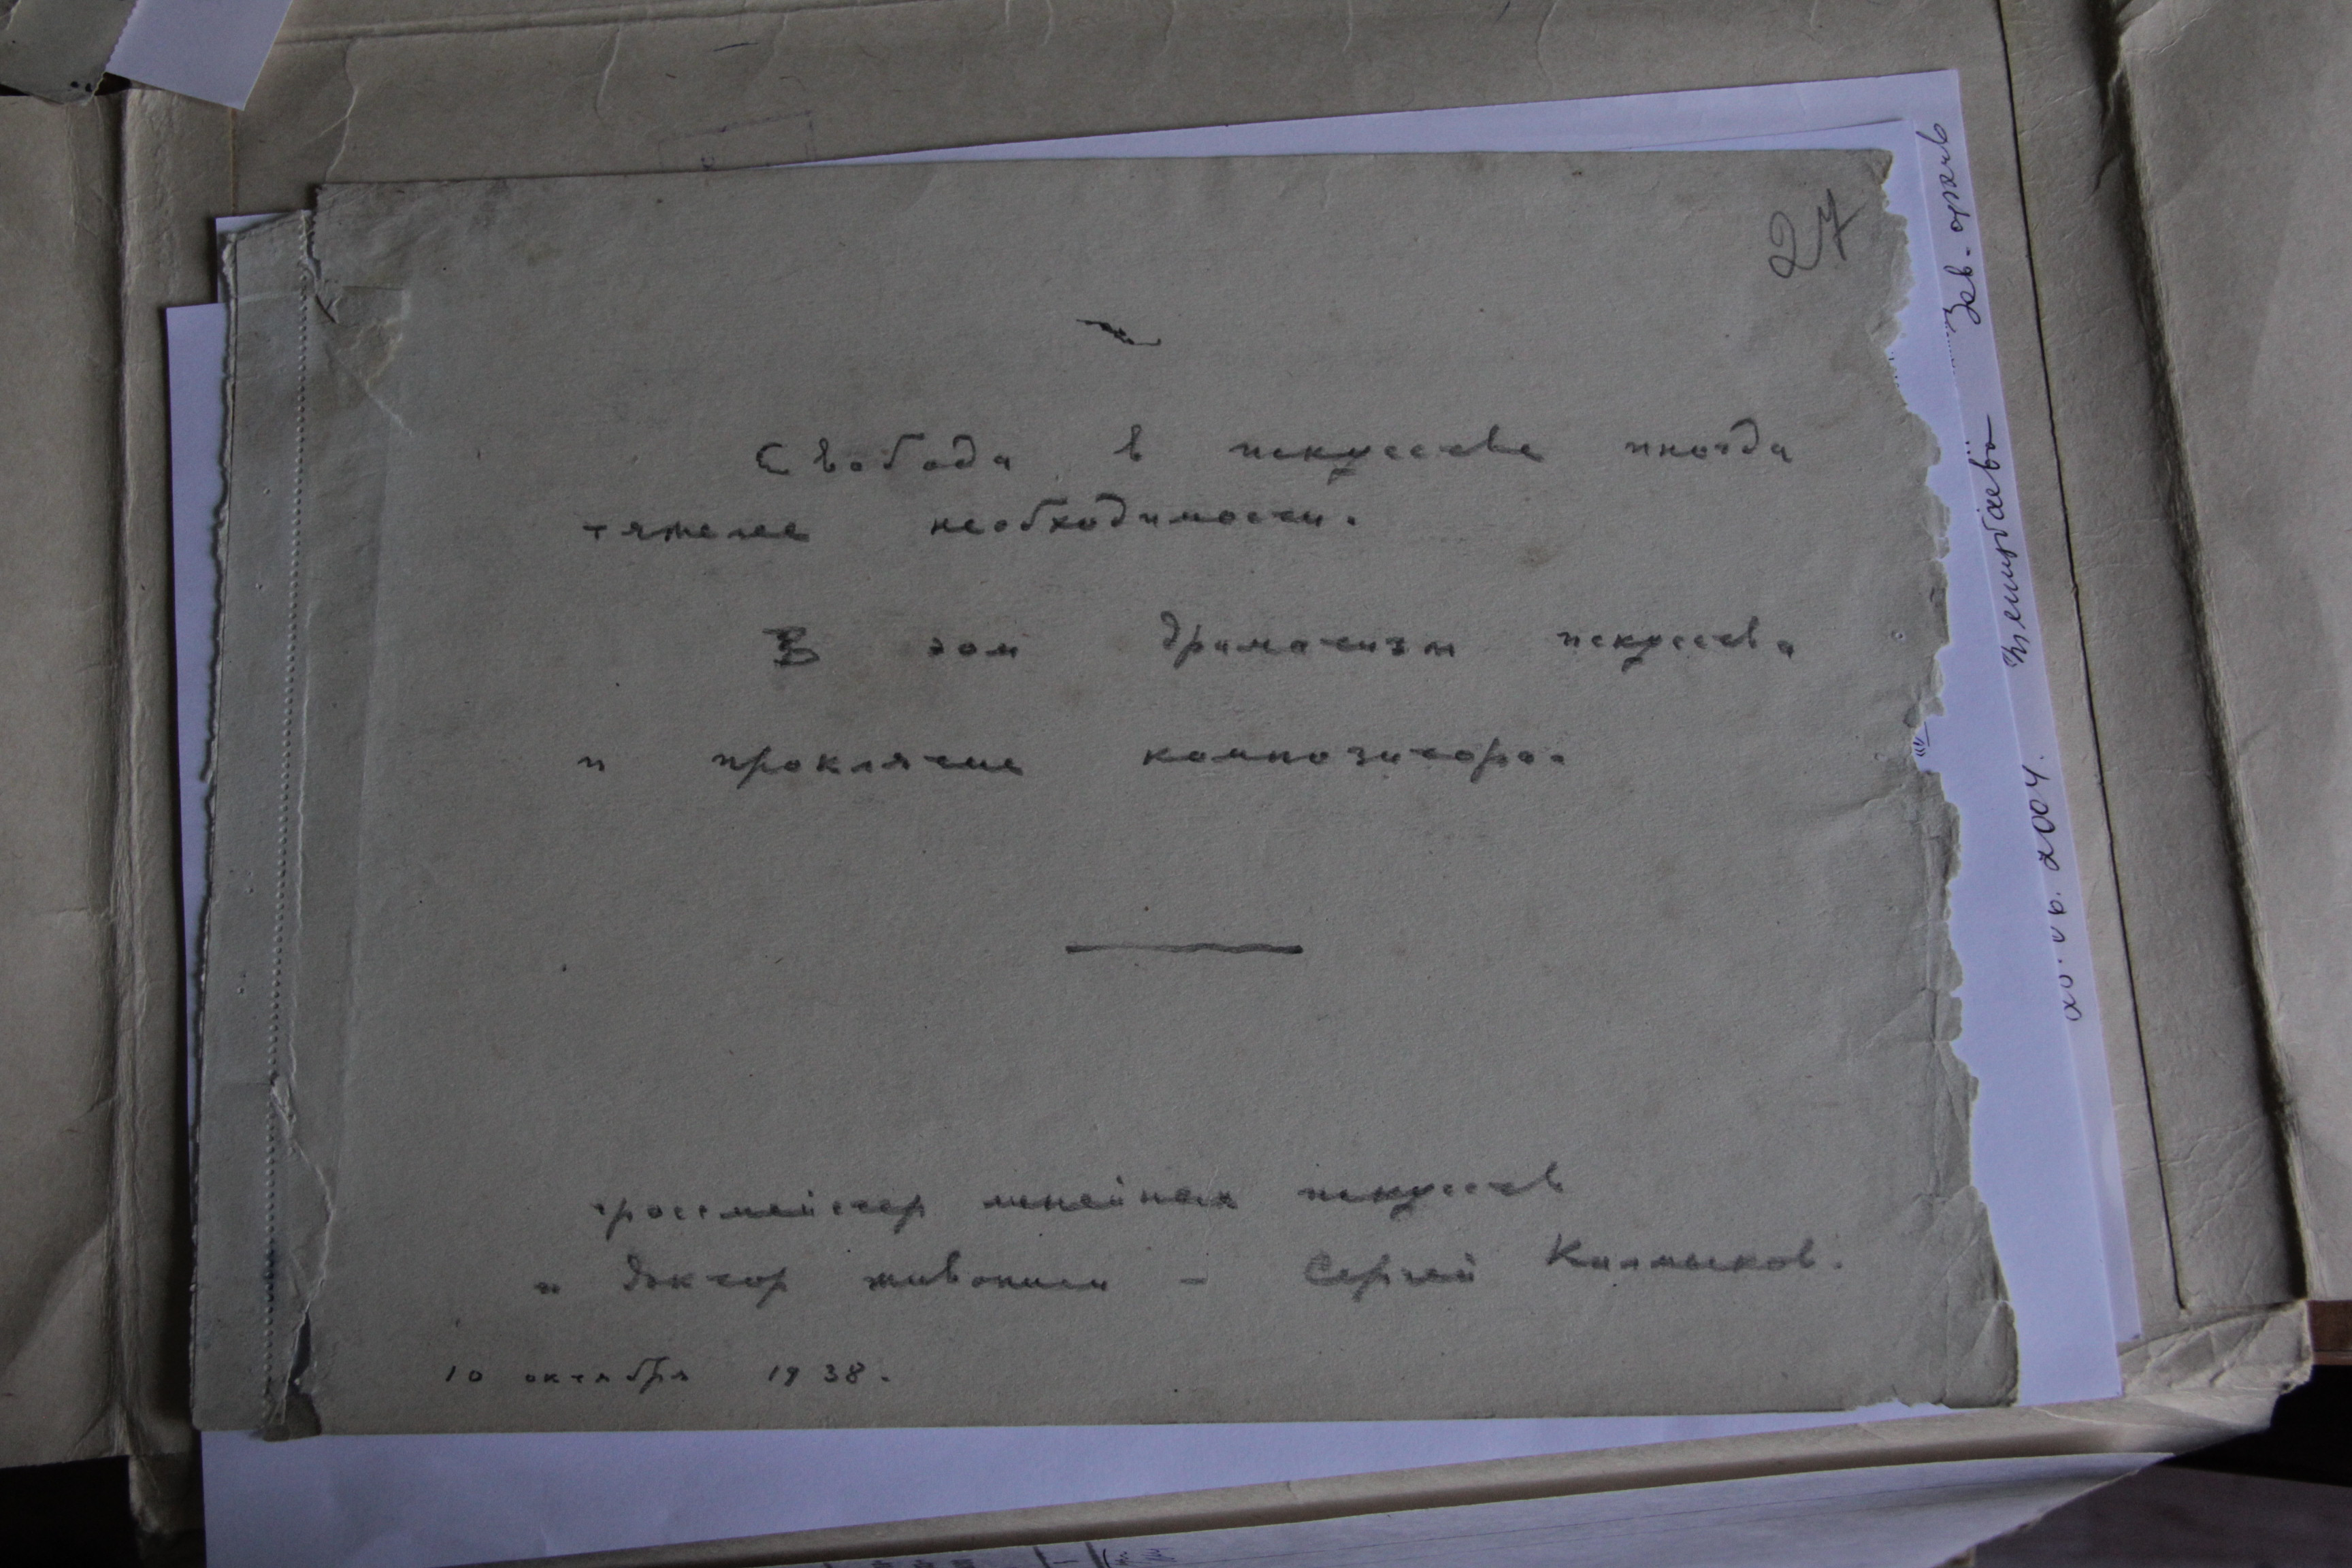 27
Свобода в искусстве иногда
тяжелее необходимости.
В том драматизм искусства
и проклятие композитора.
гроссмейстер линейных искусств
и доктор живописи - Сергей Калмыков.
10 октября 1938.
Зав. архив
2004.